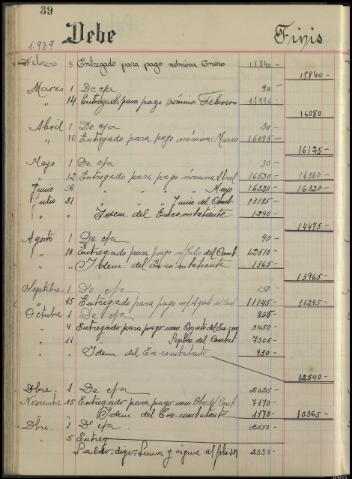 39
1.939
Debe
Finis
Febrero 8 Entregado para pago nómina Enero 15840 -
15840 -
Marzo 1 De cfa 90 -
" 14 Entregado para pago nómina Febrero
16080
Abril 1 De cfa 30 -
" 10 Entregado para pago nómina Marzo 16095 -
16125 -
Mayo 1 De cfa 30 -
" 12 Entregado para pago nómina Abril 16530 - 16560 -
Junio " " " " Mayo 16320 - 16320 -
Julio 31 " " " Junio del Comt 13185 -
" Idem del Excombatiente 1290 -
14475 -
Agosto 1 De cfa 90 -
" Entregado para pago
" Idem del Excombatiente 1365 -
13965 -
Septiembre 1 De cfa 150
" 15 Entregado para pago 11145 - 11295 -
Octubre 1 De cfa 855
" 4 Entregado para pago 3450
" 11 7305 -
" Idem del Ex-combatiente 930 -
12540 -
Dbre. 1 De cfa
Noviembre 15 Entregado para pago nom 7170
Idem del Exc. combatiente 1170 10365 -
Dbre. 1 De cfa 2550 -
" 5 Entreg
Saldo, digo, Suma y sigue al folio 2550 -